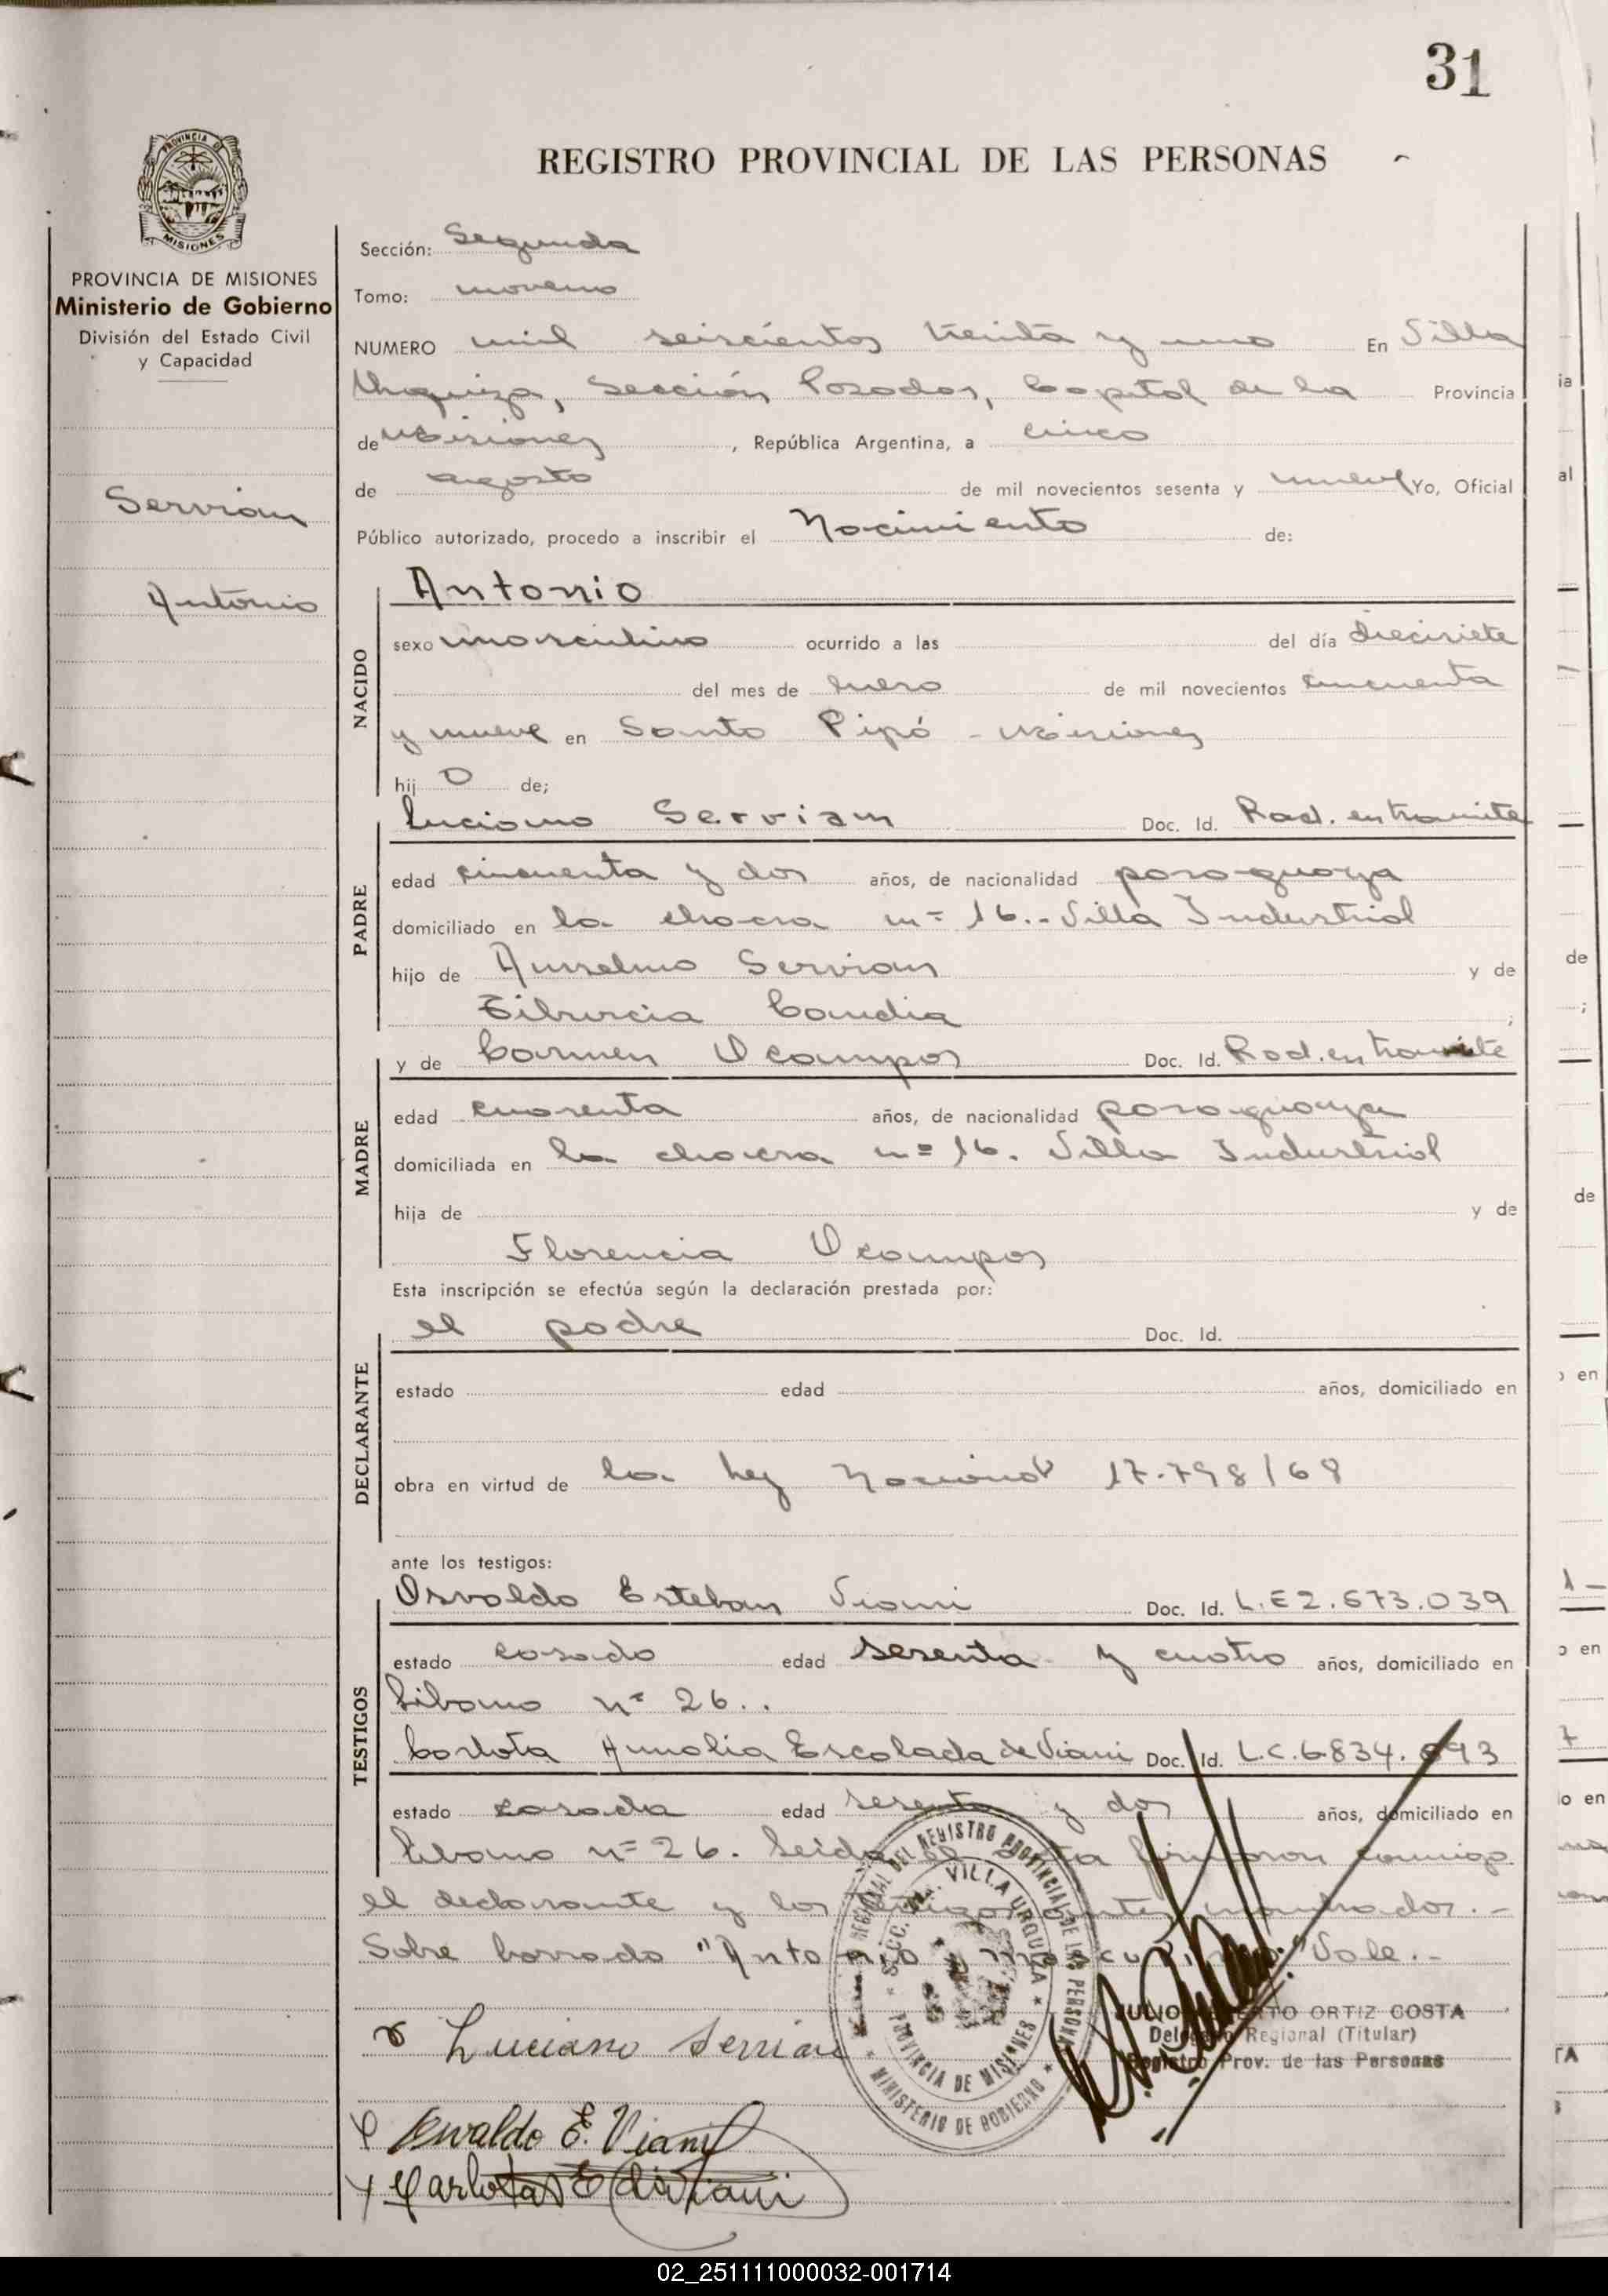 31
REGISTRO PROVINCIAL DE LAS PERSONAS
PROVINCIA DE MISIONES
PROVINCIA DE MISIONES
Ministerio de Gobierno
División del Estado Civil
y Capacidad
Servian
Antonio
Sección: Segunda
Tomo: noveno
NUMERO mil seiscientos treinta y uno En Villa
Urquiza, Sección Posadas, Capital de la Provincia
de Misiones, República Argentina, a cinco
de agosto de mil novecientos sesenta y nueve Yo, Oficial
Público autorizado, procedo a inscribir el Nacimiento de:
NACIDO
Antonio
sexo masculino ocurrido a las del día diecisiete
del mes de Enero de mil novecientos cincuenta
y nueve en Santo Pipó - Misiones
hij o de;
PADRE
Luciano Servian Doc. Id. Rad. en tramite
edad cincuenta y dos años, de nacionalidad paraguaya
domiciliado en la chacra nº 16.- Villa Industrial
hijo de Anselmo Servian y de
Tiburcia Candia ;
MADRE
y de Carmen Ocampos Doc. Id. Rad. en tramite
edad cuarenta años, de nacionalidad paraguaya
domiciliada en la chacra nº 16. Villa Industrial
hija de y de
Florencia Ocampos
Esta inscripción se efectúa según la declaración prestada por:
DECLARANTE
el padre Doc. Id.
estado edad años, domiciliado en
obra en virtud de la ley Nacional 17.798/68
ante los testigos:
TESTIGOS
Osvaldo Esteban Viani Doc. Id. L.E 2.573.039
estado casado edad sesenta y cuatro años, domiciliado en
Libano nº 26..
Carlota Amalia Escalada de Viani Doc. Id. L.C. 6834.693
estado casada edad sesenta y dos años, domiciliado en
Libano nº 26. Leida el acta firmaron conmigo
el declarante y los testigos antes nombrados.-
Sobre borrado "Antonio y masculino" Vale.-
REGIONAL DEL REGISTRO PROVINCIAL DE LAS PERSONAS
VILLA URQUIZA
PROVINCIA DE MISIONES
MINISTERIO DE GOBIERNO
JULIO ORTIZ COSTA
Delegado Regional (Titular)
Registro Prov. de las Personas
Luciano Servian
Oswaldo E. Viani
Carlota E de Viani
ia
al
de
;
de
en
1-
o en
7
lo en
TA
02_251111000032-001714